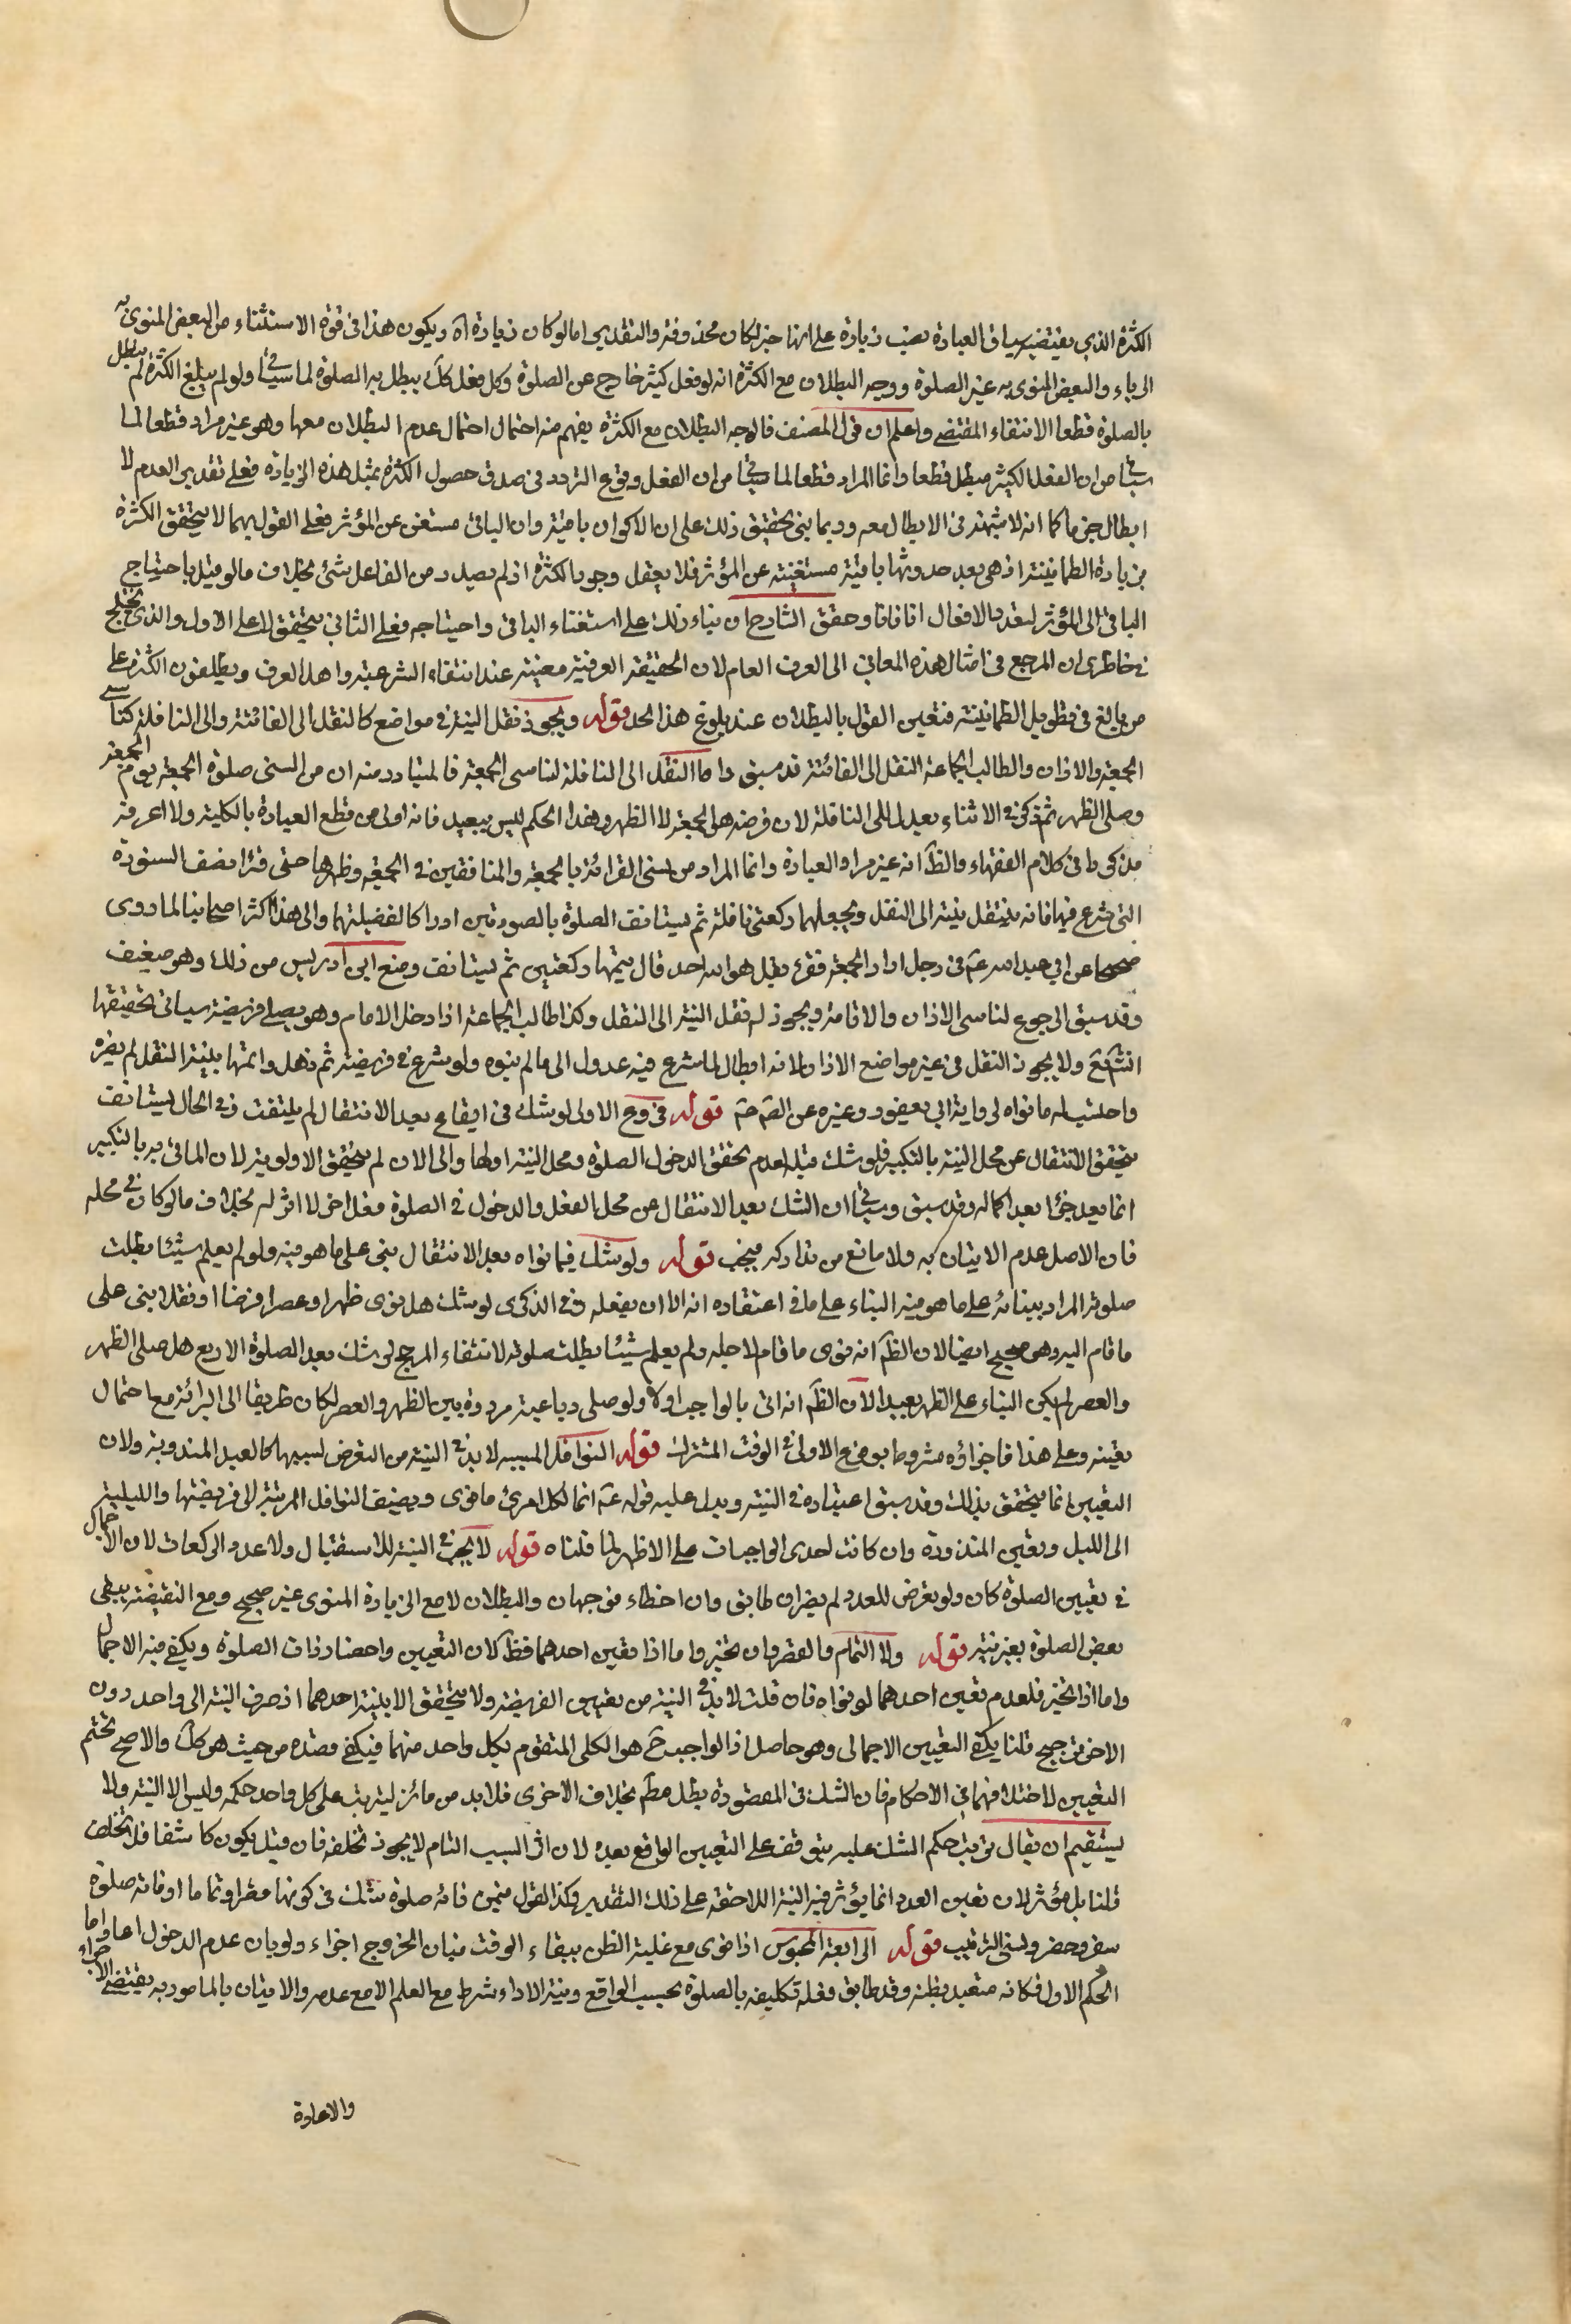 الكثرة الذي يقتضيه سياق العبارة نصب زيادة على انها خبر لكان محذوفة والتقدير اما لو كان زيادة اه ويكون هذا في قوة الاستثناء من البعض المنوي به
الرياء والبعض المنوي به غير الصلوة ووجه البطلان مع الكثرة انه لو فعل كثير خارج عن الصلوة وكل فعل كك يبطل به الصلوة لما سيأتي ولو لم يبلغ الكثرة لم يبطل
بالصلوة قطعا لانتفاء المقتضي واعلم ان قول المصنف فالوجه البطلان مع الكثرة يفهم منه احتمال احتمال عدم البطلان معها وهو غير مراد قطعا لما
سيأتي من ان الفعل الكثير مبطل قطعا وانما المراد قطعا لما سيأتي من ان الفعل وقوع التردد في صدق حصول الكثرة بمثل هذه الزيادة فعلى تقدير العدم لا
ابطال جزما كما انه لا شبهة في الابطال معه وربما بني تحقيق ذلك على ان الاكوان باقية وان الباقي مستغن عن المؤثر فعلى القول بهما لا يتحقق الكثرة
بزيادة الطمانينة اذ هي بعد حدوثها باقية مستغنية عن المؤثر فلا يعقل وجود الكثرة اذ لم يصدر من الفاعل شئ بخلاف ما لو قيل باحتياج
الباقي الى المؤثر لتعدد الافعال انا فانا وحقق الشارح ان بناء ذلك على استغناء الباقي واحتياجه فعلى الثاني يتحقق لا على الاول والذي يختلج
في خاطري ان المرجع في امثال هذه المعاني الى العرف العام لان الحقيقة العرفية معينة عند انتفاء الشرعية واهل العرف يطلقون الكثرة على
من بالغ في تطويل الطمانينة فتعين القول بالبطلان عند بلوغ هذا الحد قوله ويجوز نقل النية في مواضع كالنقل الى الفائتة والى النافلة كناسي
الجمعة والاذان والطالب الجماعة النقل الى الفائتة قد سبق واما النقل الى النافلة لناسي الجمعة فالمتبادر منه ان من السنن صلوة الجمعة يوم الجمعة
وصلى الظهر ثم ذكر في الاثناء يعدل الى النافلة لان فرضه هو الجمعة لا الظهر وهذا الحكم ليس ببعيد فانه اولى من قطع العبادة بالكلية ولا اعرفه
مذكورا في كلام الفقهاء والظ انه غير مراد العبارة وانما المراد من نسي القرائة بالجمعة والمنافقين في الجمعة وظهرها حتى قرا نصف السورة
التي شرع فيها فانه ينتقل بنيته الى النفل ويجعلها ركعتي نافلة ثم يستانف الصلوة بالصورتين ادراكا لفضيلتهما والى هذا اكثر اصحابنا لما روى
صحيحا عن ابي عبد الله ع في رجل اراد الجمعة فقرء بقل هو الله احد قال يتمها ركعتين ثم يستانف ومنع ابن ادريس من ذلك وهو ضعيف
وقد سبق الرجوع لناسي الاذان والاقامة ويجوز له نقل النية الى النفل وكذا طالب الجماعة اذا دخل الامام وهو يصلي فريضة سياتي تحقيقها
انشائع ولا يجوز النقل في غير مواضع الاذن لانه ابطال لما شرع فيه عدول الى ما لم ينوه ولو شرع في فريضة ثم ذهل واتمها بنية النفل لم يضره
واحتسب له ما نواه لرواية ابن يعفور وغيره عن الص ع قوله فروع الاول لو شك في ايقاع بعد الانتقال لم يلتفت وفي الحال يستانف
يتحقق الانتقال عن محل النية بالتكبير فلو شك قبله لعدم تحقق الدخول الصلوة ومحل النية اولها والى الان لم يتحقق الاولوية لان الماتي به بالتكبير
انما يعد جزءا بعد اكماله وقد سبق وسيأتي ان الشك بعد الانتقال من محل الفعل والدخول في الصلوة فعل اخر لا اثر له بخلاف ما لو كان في محله
فان الاصل عدم الاتيان به ولا مانع من تداركه فيجب قوله ولو شك فيما نواه بعد الانتقال بنى على ما هو فيه ولو لم يعلم شيئا بطلت
صلوته المراد ببنائه على ما هو فيه البناء على ما في اعتقاده انه الان يفعله وفي الذكرى لو شك هل نوى ظهرا او عصرا او فرضا او نفلا بنى على
ما قام اليه وهو صحيح ايضا لان الظ انه نوى ما قام لاجله ولم يعلم شيئا بطلت صلوته لانتفاء المرجح لو شك بعد الصلوة الاربع هل صلى الظهر
والعصر لم يكن البناء على الظهر بعيدا لان الظ انه اتى بالواجب اولا ولو صلى رباعية مرددة بين الظهر والعصر لكان طريقا الى البرائة مع احتمال
تعينه وعلى هذا فاجزاؤه مشروط بوقوع الاولى في الوقت المشترك قوله النوافل المسببة لا بد في النية من التعرض لسببها كالعيد المندوبة ولان
التعيين انما يتحقق بذلك وقد سبق اعتباره في النية ويدل عليه قوله ع انما لكل امرئ ما نوى ويضيف النوافل المرتبة الى فريضتها والليلية
الى الليل وتعين المنذورة وان كانت احدى الواجبات على الاظهر لما قلناه قوله لا يجب في النية للاستقبال ولا عدد الركعات لان الاجمال
في تعيين الصلوة كان ولو تعرض للعدد لم يضر ان طابق وان اخطاء فوجهان والبطلان لا مع الزيادة المنوي غير صحيح ومع النقيضة يبقى
بعض الصلوة بغير نية قوله ولا التمام والقصر وان تخير واما اذا تعين احدهما فظ لان التعيين واحضار ذات الصلوة ويكفي فيه الاجمال
واما اذا تخير فلعدم تعين احدهما لو نواه فان قلت لا بد في النية من تعيين الفريضة ولا يتحقق الا بنية احدهما اذ صرف النية الى واحد دون
الاخر ترجيح قلنا يكفي التعيين الاجمالي وهو حاصل اذ الواجب ح هو الكلي المتقوم بكل واحد منهما فيكفي قصده من حيث هو كك والاصح تحتم
التعيين لاختلافهما في الاحكام فان الشك في المقصورة يبطل مط بخلاف الاخرى فلا بد من مائز ليترتب على كل واحد حكمه وليس الا النية ولا
يستقيم ان يقال ترتب حكم الشك عليه يتوقف على التعيين الواقع بعده لان اثر السبب التام لا يجوز تخلفه فان قيل يكون كاشفا فلا تخلف
قلنا بل مؤثر لان تعين العدد انما يؤثر فيه النية اللاحقة على ذلك التقدير وكذا القول فيمن فاته صلوة شك في كونها قصرا وتماما او فاته صلوة
سفر وحضر ونسي الترتيب قوله الرابعة المحبوس اذا نوى مع غلبة الظن ببقاء الوقت فبان الخروج اجزاء ولو بان عدم الدخول اعاد اما
الحكم الاول فكانه متعبد بظنه وقد طابق فعله تكليفه بالصلوة بحسب الواقع ونية الاداء شرط مع العلم لا مع عدمه والاتيان بالمامور به يقتضي الاجزاء
والاعادة